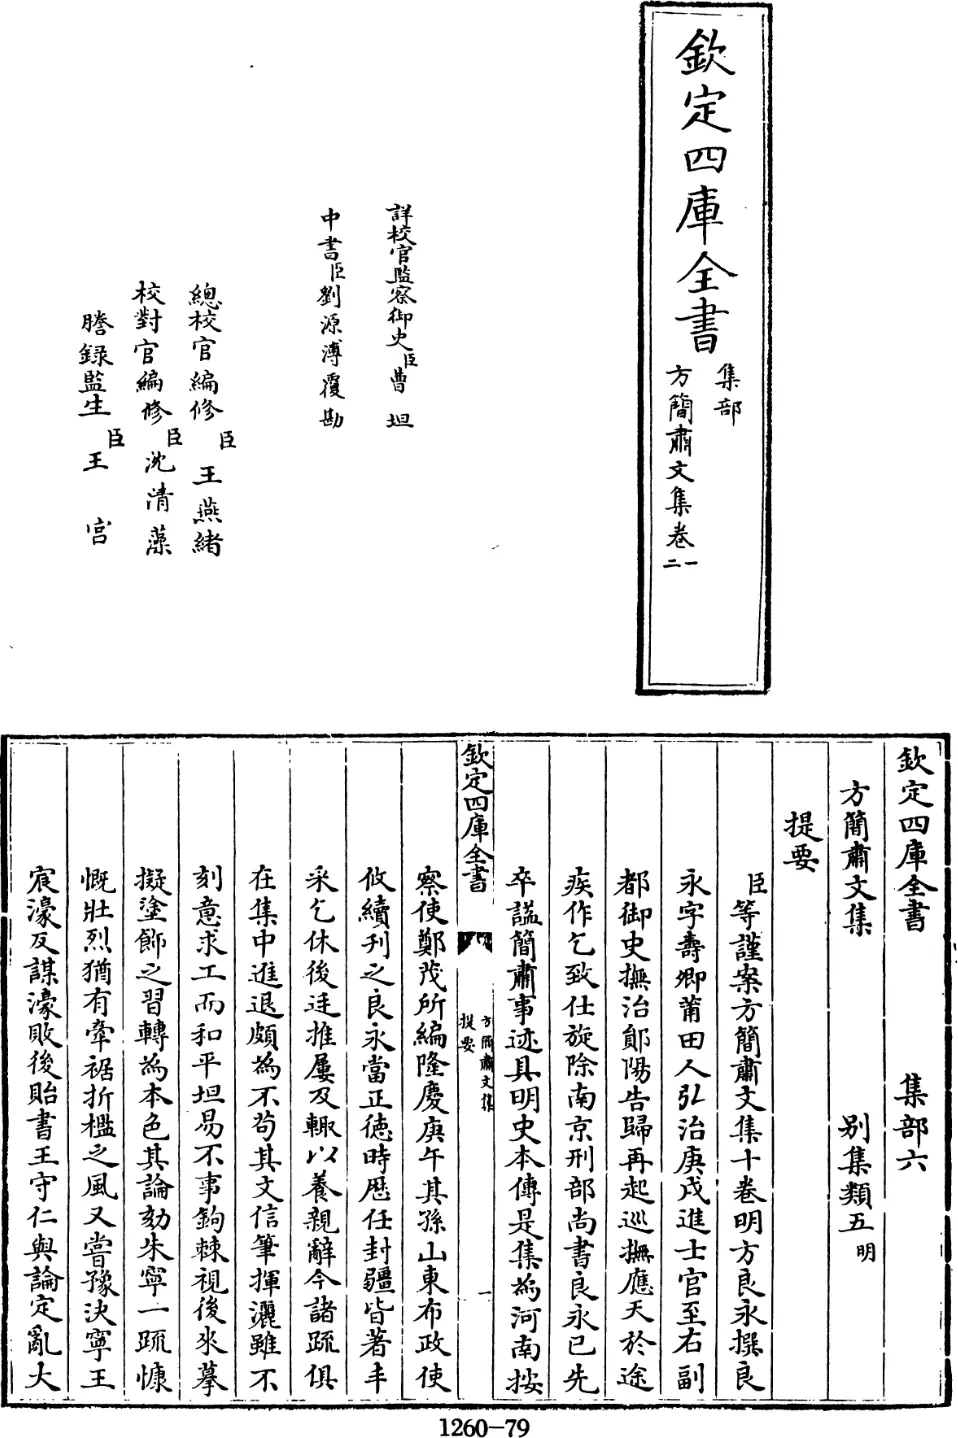 欽定四庫全書
集部
方簡肅文集卷一
二
詳校官監察御史臣曹坦
中書臣劉源溥覆勘
總校官編修臣王燕緒
校對官編修臣沈清藻
謄録監生臣王宫
欽定四庫全書 集部六
方簡肅文集 别集類五明
提要
臣等謹案方簡肅文集十卷明方良永撰良
永字壽卿莆田人弘治庚戌進士官至右副
都御史撫治鄖陽告歸再起巡撫應天於途
疾作乞致仕旋除南京刑部尚書良永已先
卒諡簡肅事迹具明史本傳是集為河南按
欽定四庫全書 方簡肅文集 提要 一
察使鄭茂所編隆慶庚午其孫山東布政使
攸續刋之良永當正德時歷任封疆皆著丰
采乞休後連推屢及輙以養親辭今諸疏俱
在集中進退頗為不茍其文信筆揮灑雖不
刻意求工而和平坦易不事鉤棘視後來摹
擬塗飾之習轉為本色其論劾朱寧一疏慷
慨壯烈猶有牽裾折檻之風又嘗豫決寧王
宸濠反謀濠敗後貽書王守仁與論定亂大
1260-79